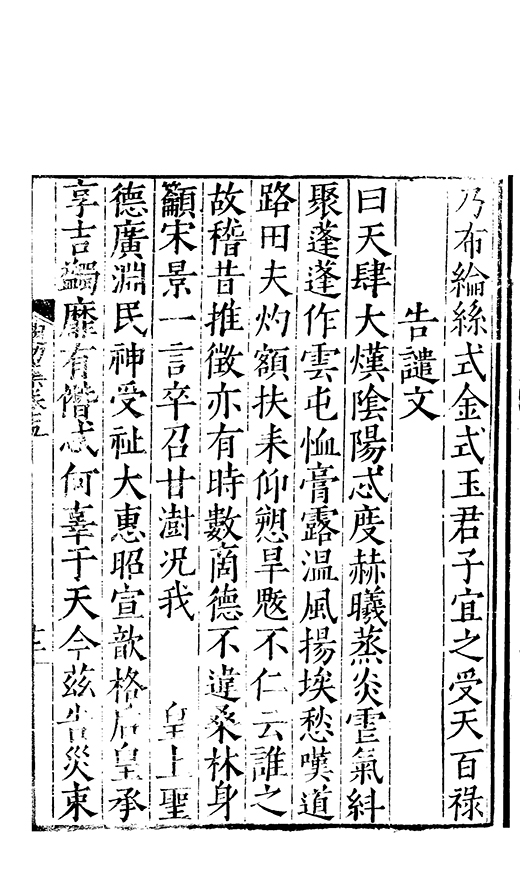 乃布綸絲式金式玉君子宜之受天百祿
告譴文
曰天肆大熯陰陽忒度赫曦蒸炎雩氣糾
聚蓬蓬作雲屯恤膏露溫風揚埃愁嘆道
路田夫灼額扶耒仰愬旱魃不仁云誰之
故稽昔推徵亦有時數商德不違桑林身
籲宋景一言卒召甘澍況我 皇上聖
德廣淵民神受祉大惠昭宣歆格后皇承
享吉蠲靡有僭忒何辜于天今茲告災東